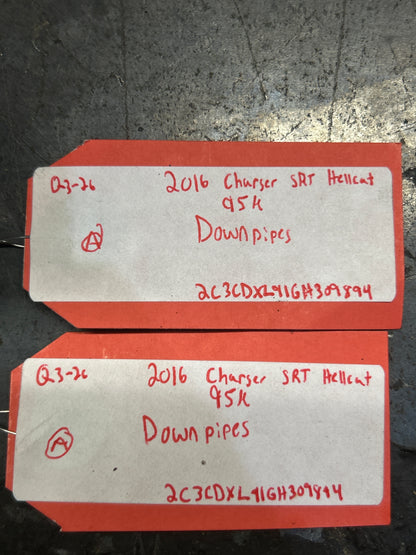 Q3-26 2016 Charger SRT Hellcat
95K
A Downpipes
2C3CDXL91GH309894
Q3-26 2016 Charger SRT Hellcat
95K
A Downpipes
2C3CDXL91GH309894